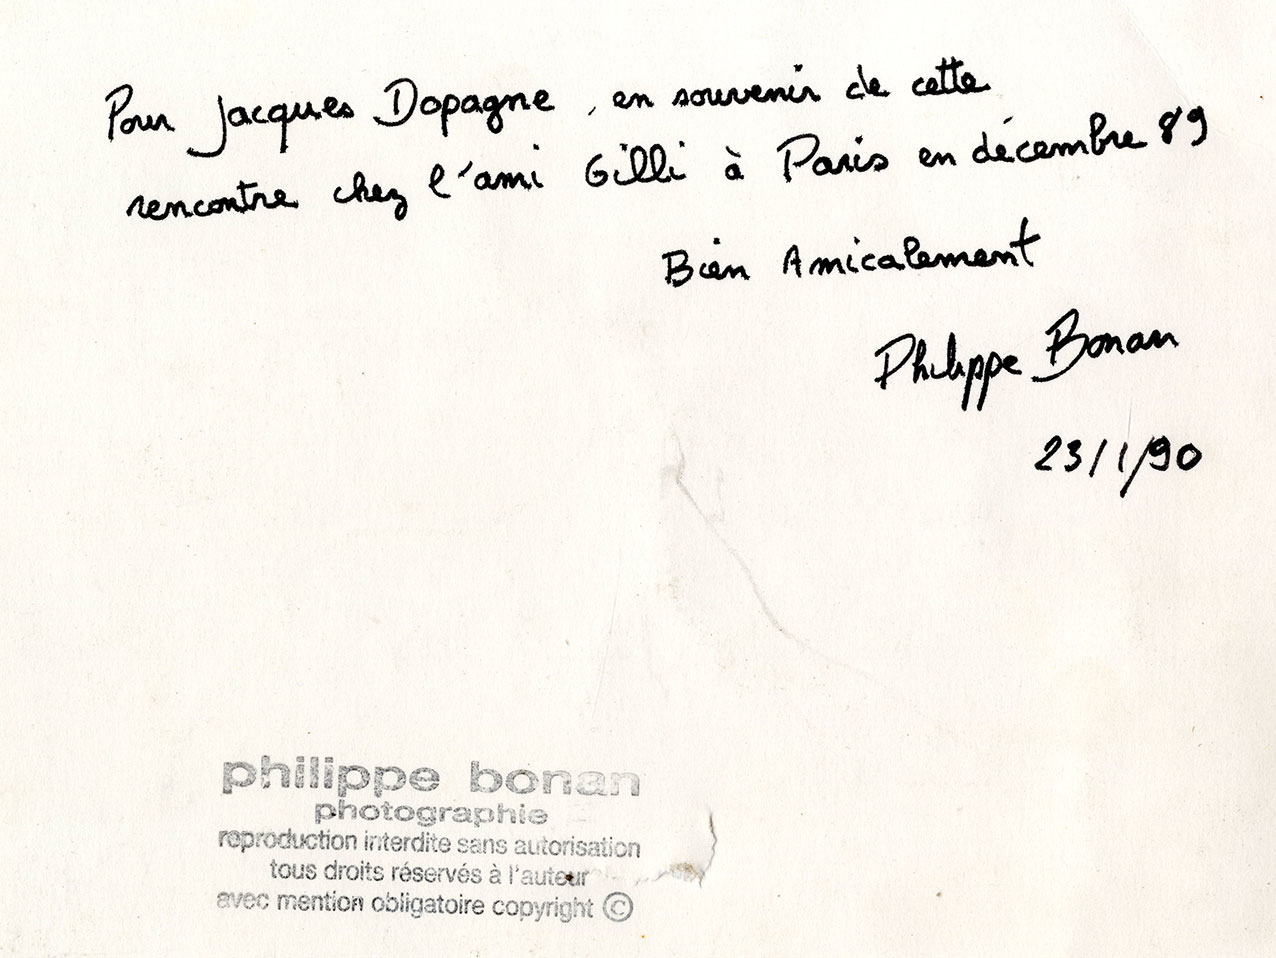 Pour Jacques Dopagne, en souvenir de cette
rencontre chez l'ami Gilli à Paris en décembre 89
Bien Amicalement
Philippe Bonan
23/1/90
philippe bonan
photographie
reproduction interdite sans autorisation
tous droits réservés à l'auteur
avec mention obligatoire copyright ©